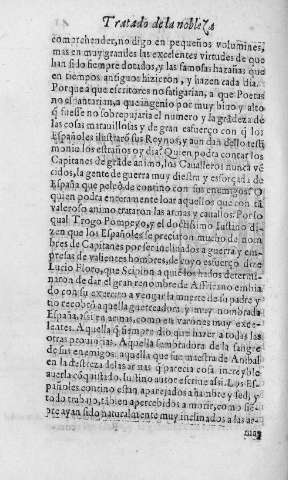 Tratado de la nobleza
comprehender, no digo en pequeños volumines,
mas en muy grandes las excelentes virtudes de que
han sido siempre dotados, y las famosas hazañas que
en tiempos antiguos hizieron, y hazen cada dia.
Porque a que escritores no fatigarian, a que Poetas
no espantarian, a que ingenio por muy biuo y alto
q̃ fuesse no sobrepujaria el numero y la grãdeza de
las cosas marauillosas y de gran esfuerço con q̃ los
Españoles ilustrarõ sus Reynos, y aun dan dello testi
monio los estraños oy dia? Quien podra contar los
Capitanes de grãde animo, los Caualleros nunca vẽ
cidos, la gente de guerra muy diestra y esforçada de
España que peleò de contino con sus enemigos? O
quien podra enteramente loar aquellos que con tã
valeroso animo trataron las armas y cauallos. Por lo
qual Trogo Pompeyo, y el doctissimo Iustino di-
zen que los Españoles se preciaron mucho de nom
bres de Capitanes por ser inclinados a guerra y em
presas de valientes hombres, de cuyo esfuerço dize
Lucio Floro, que Scipion a quiẽ los hados determi
naron de dar el gran renombre de Affricano embia
do con su exercito a vengar la muerte de su padre y
tio recobrò aquella guerreadora, y muy nombrada
España, assi en armas, como en varones muy exce-
lentes. Aquella q̃ siempre dio que hazer a todas las
otras prouincias. Aquella sembradora de la sangre
de sus enemigos, aquella que fue maestra de Anibal
en la destreza de las armas q̃ parecia cosa increyble
auerla cõquistado. Iustino autor escriue assi. Los Es-
pañoles contino estan aparejados a hambre y sed, y
todo trabajo, tãbien apercebidos a morir, como siẽ-
pre ayan sido naturalmente muy inclinados a las ar-
mas